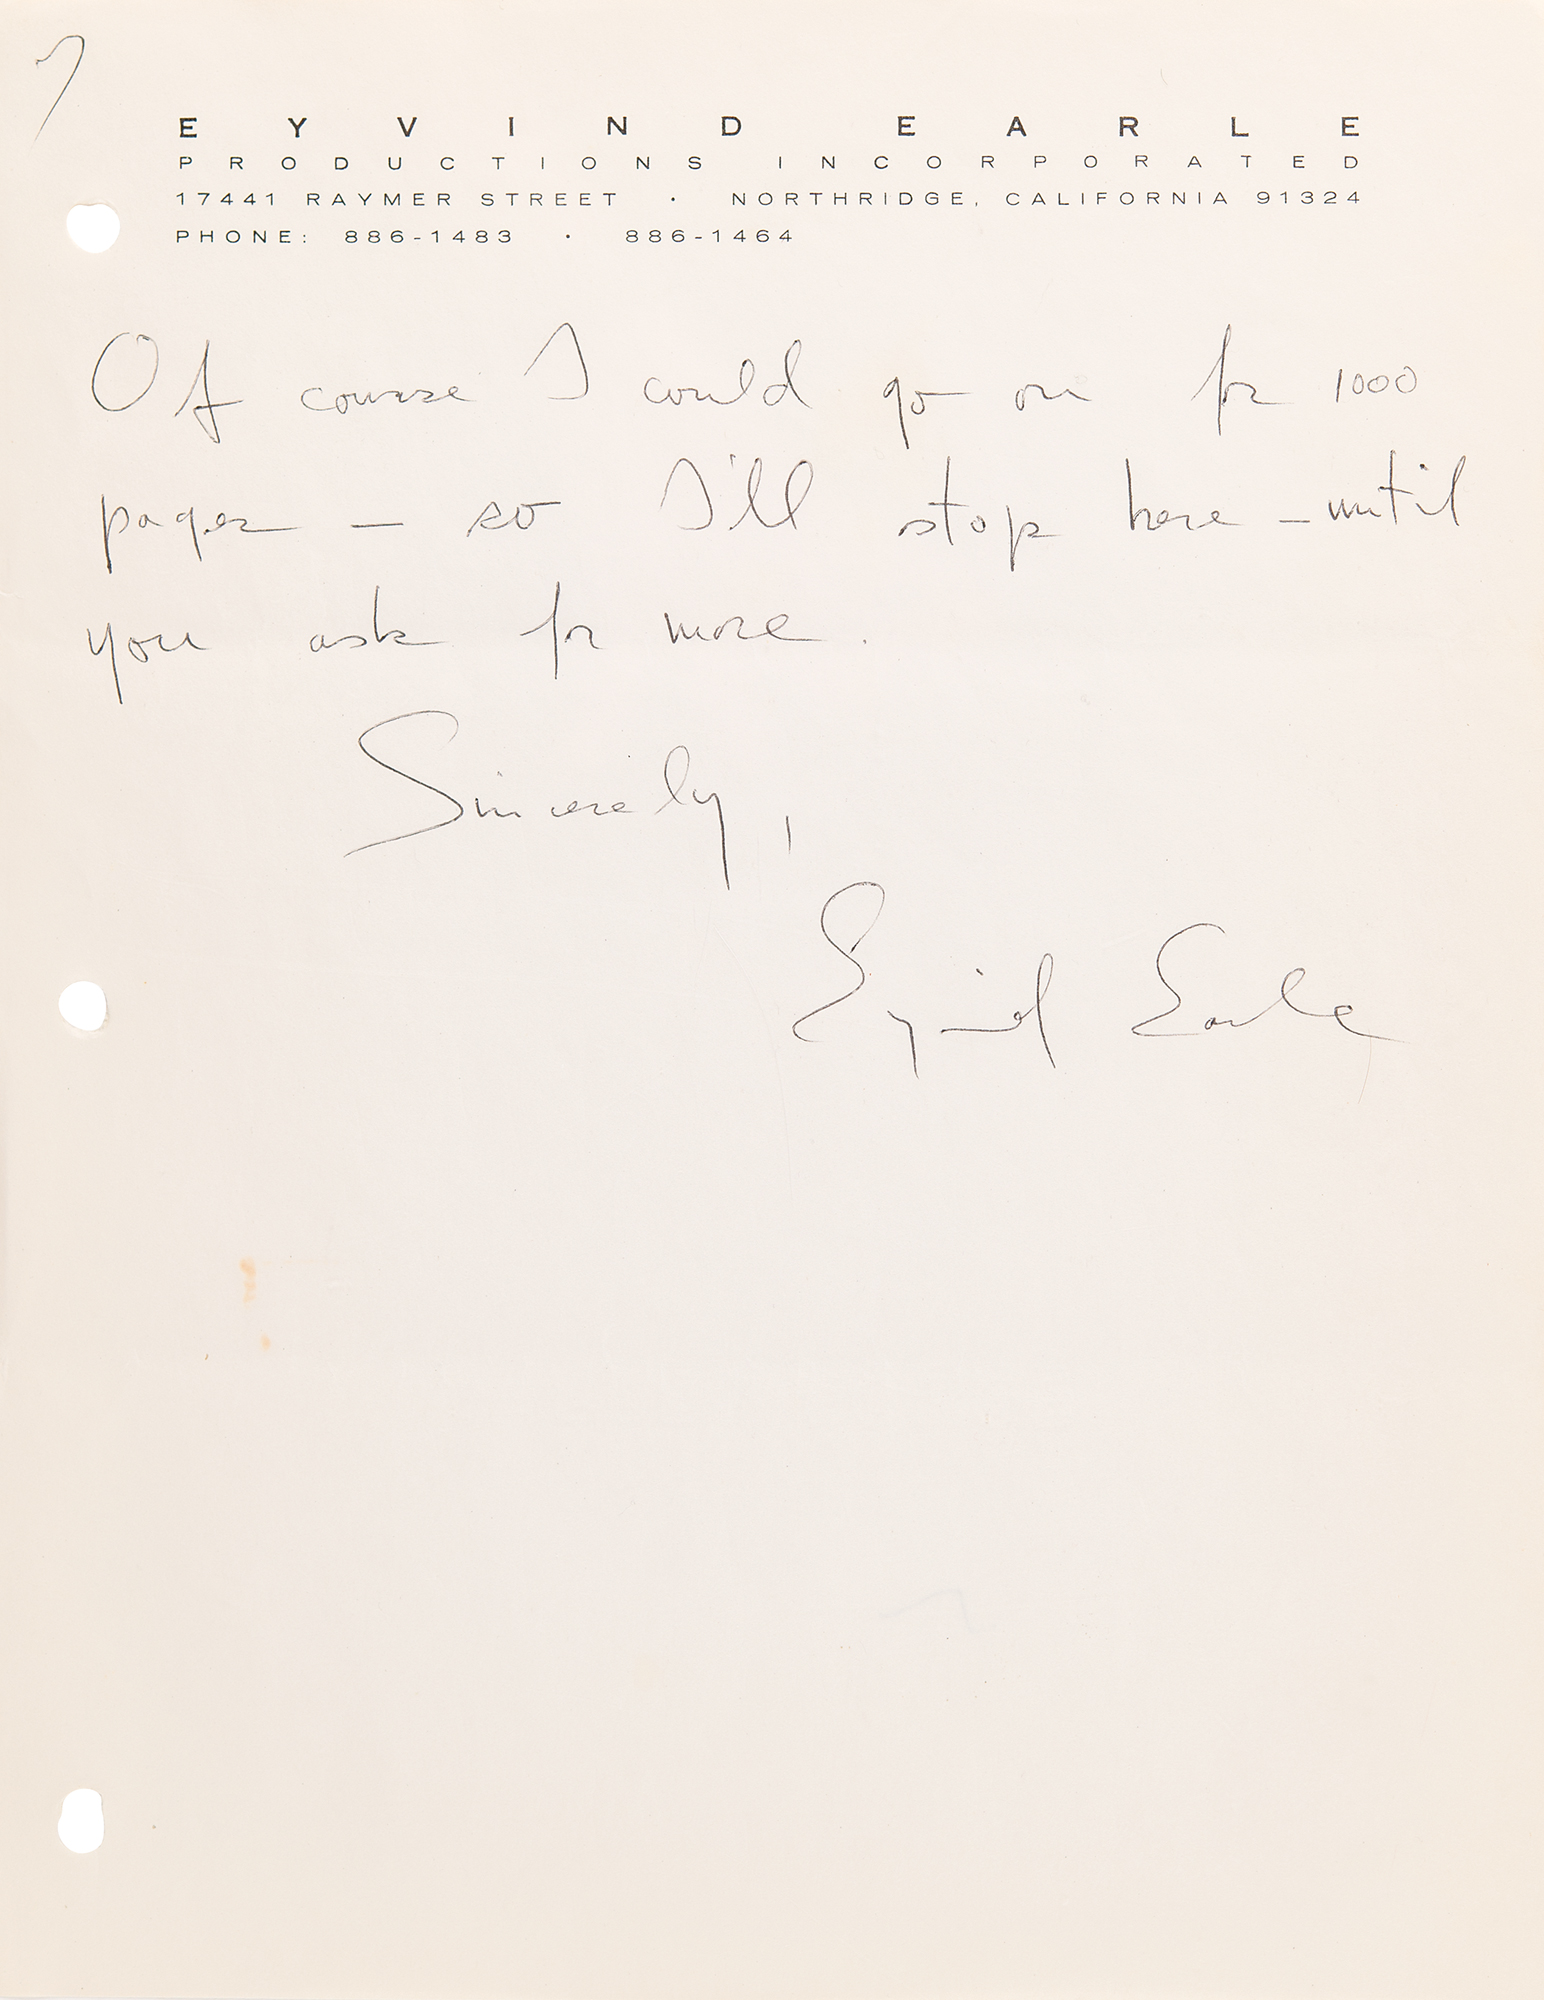 7
EYVIND EARLE
PRODUCTIONS INCORPORATED
17441 RAYMER STREET · NORTHRIDGE, CALIFORNIA 91324
PHONE: 886-1483 · 886-1464
Of course I could go on for 1000
pages — so I'll stop here – until
you ask for more.
Sincerely,
Eyvind Earle